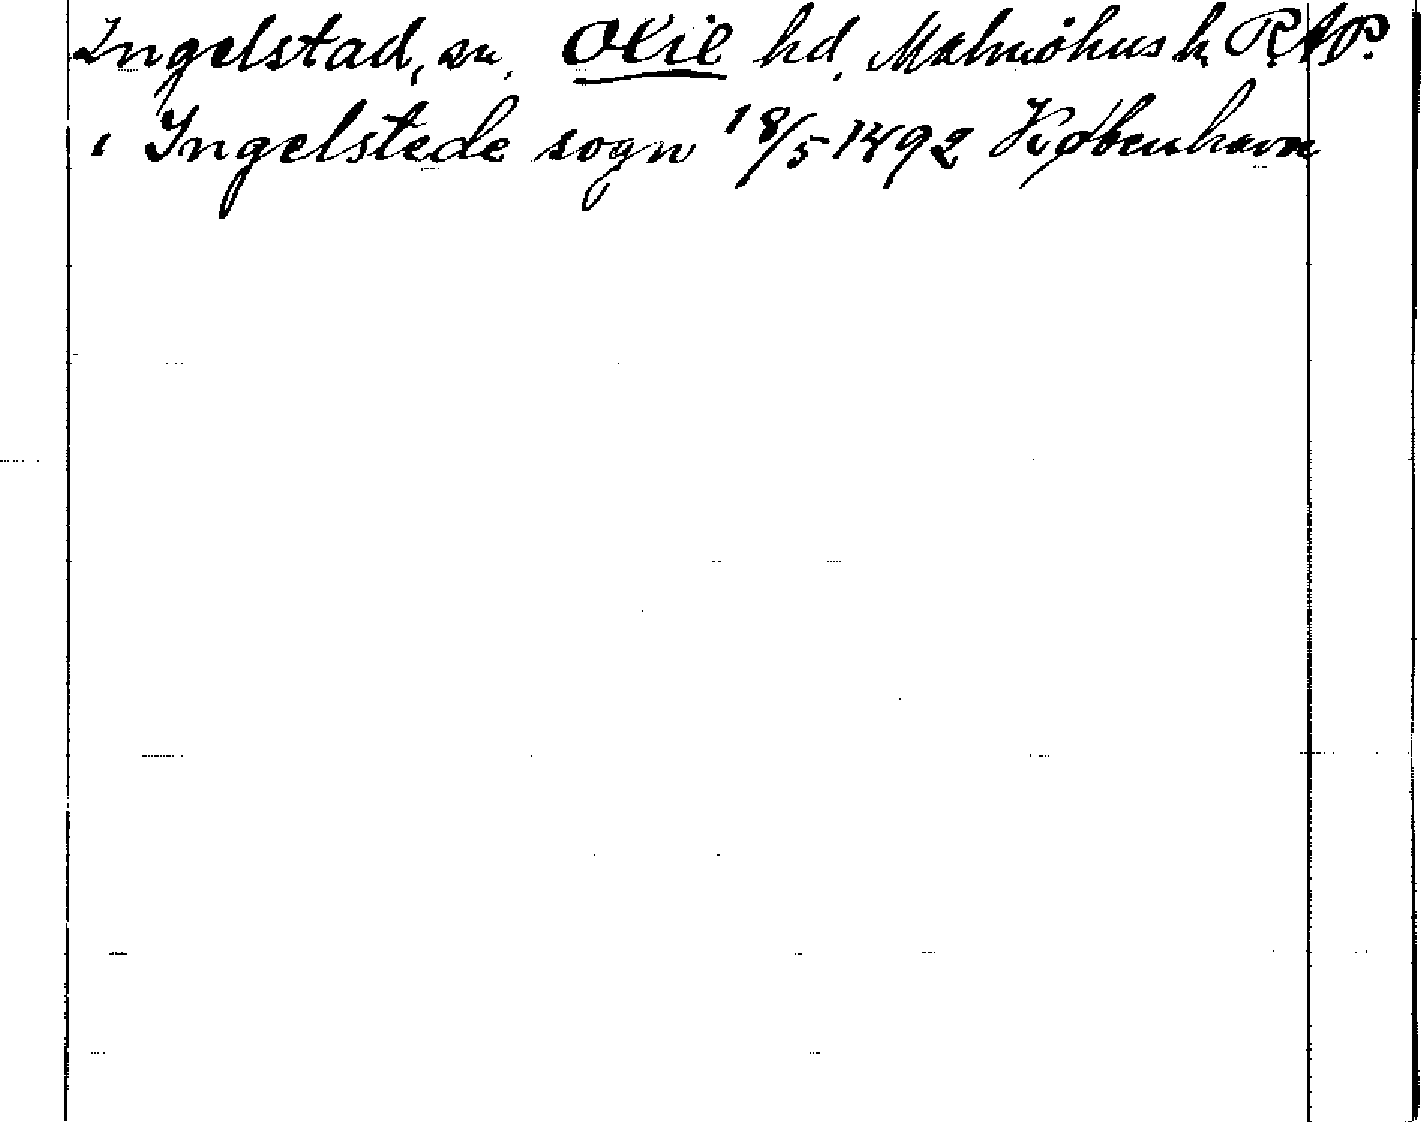 Ingelstad, sn, Oxie hd, Malmöhus l, RAP.
i Ingelstede sogn 18/5 1492 København